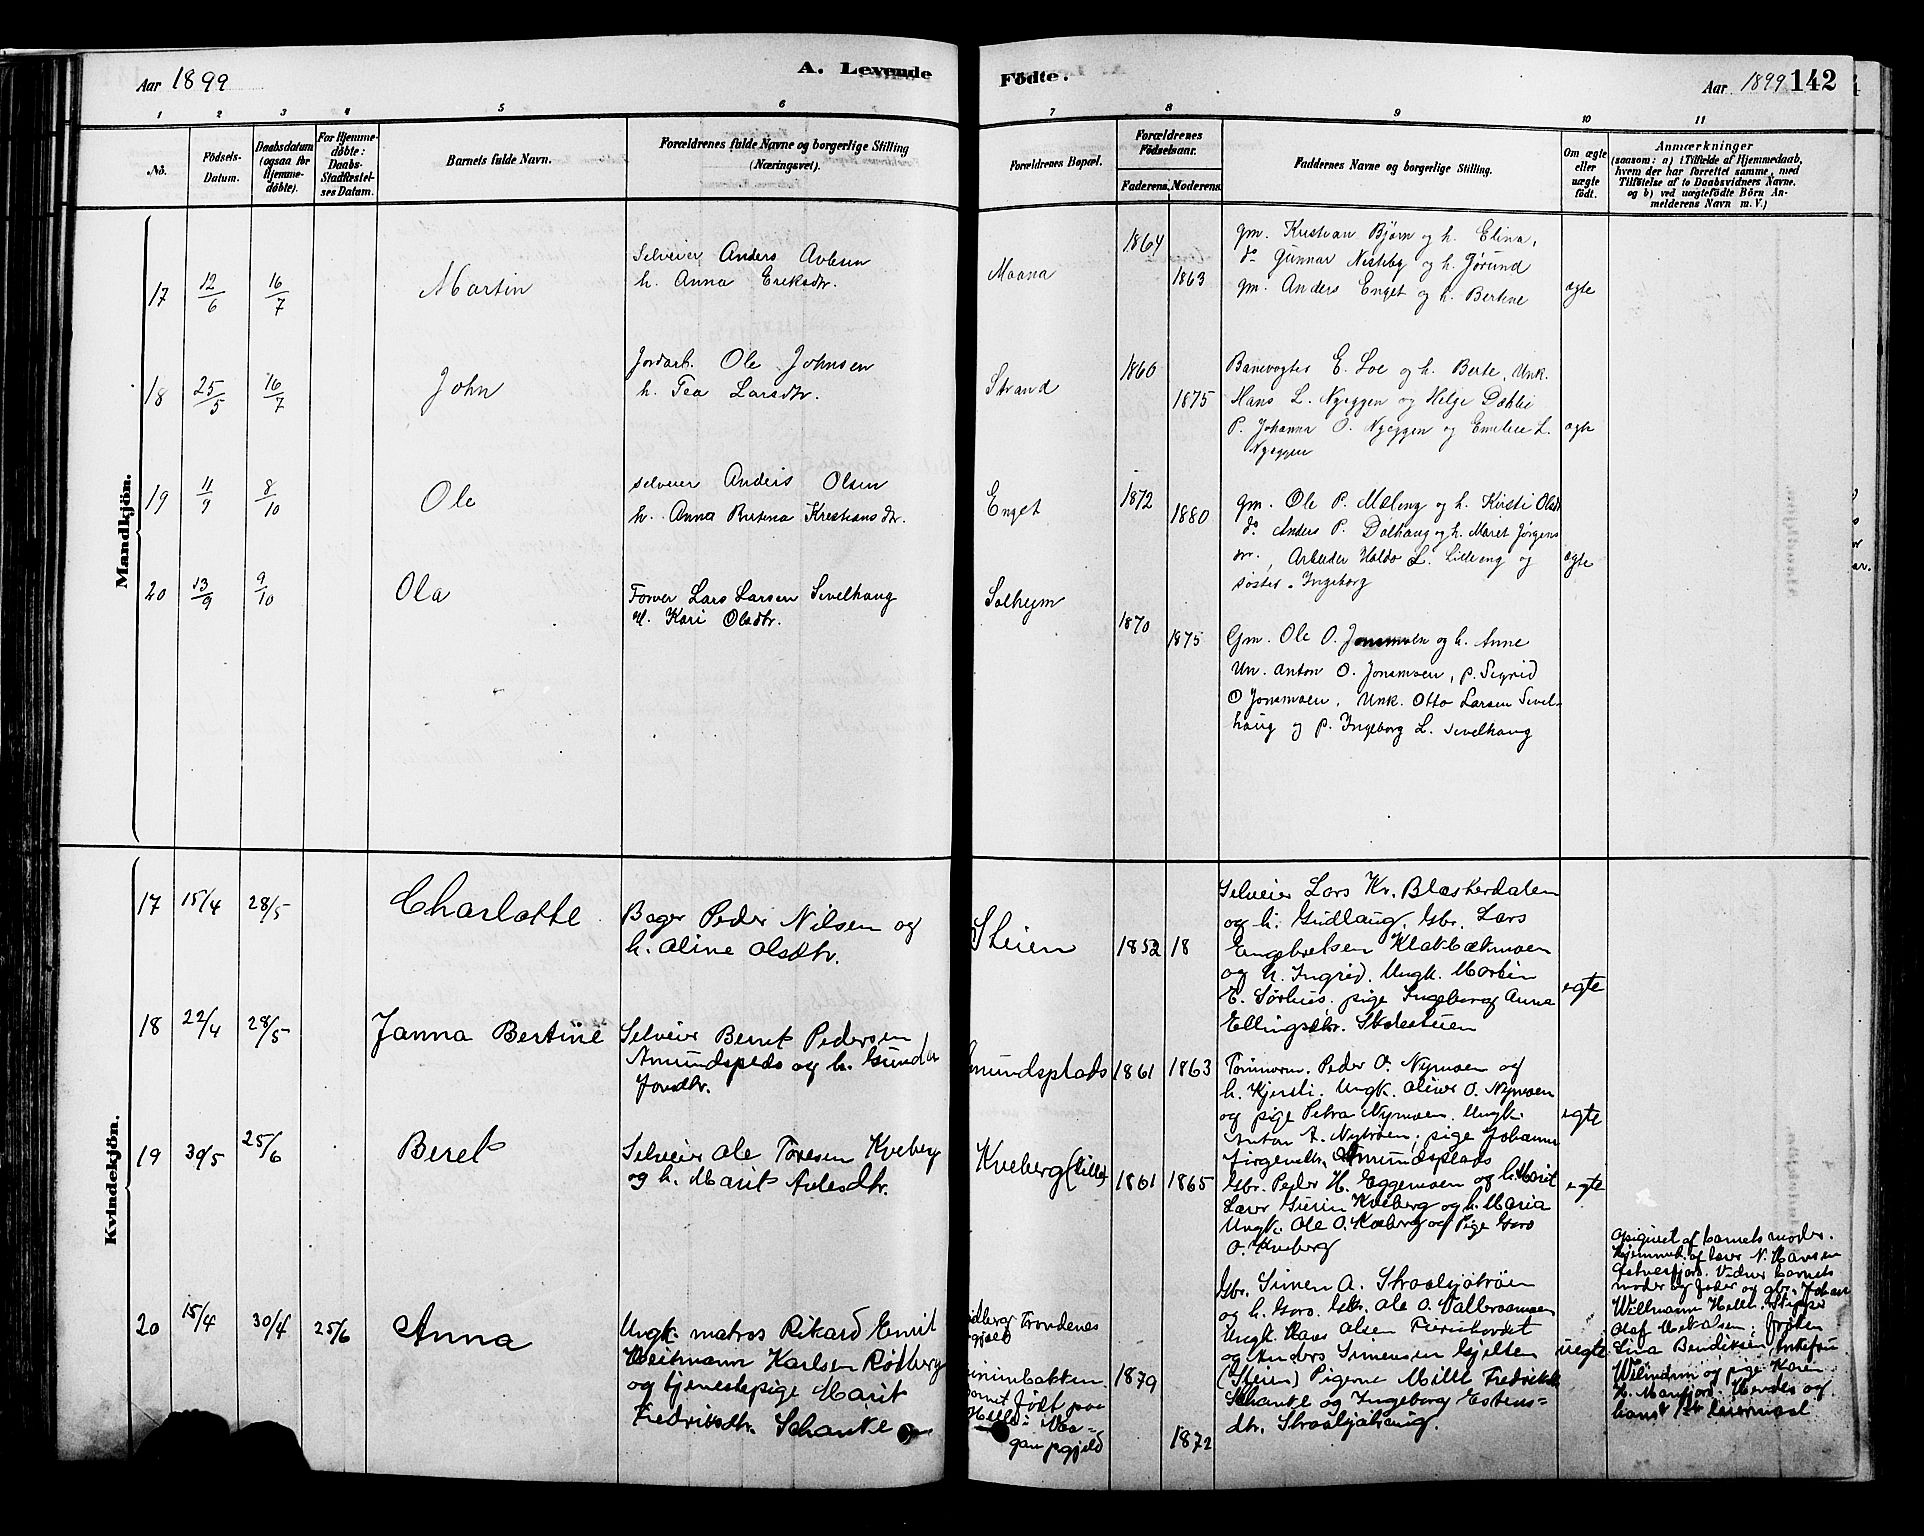 Aar 1899
A. Levende
Fødte.
Aar 1899 142
1 2 3 4 5 6 7 8 9 10 11
No.
Fødsels-
Datum.
Daabsdatum
(ogsaa for
Hjemme-
døbte).
For Hjemme-
døbte:
Daabs-
Stadfæstel-
ses Datum.
Barnets fulde Navn.
Forældrenes fulde Navne og borgerlige Stilling
(Næringsvei).
Forældrenes Bopæl.
Forældrenes
Fødselsaar.
Faderens. Moderens.
Faddernes Navne og borgerlige Stilling.
Om ægte
eller
uægte
født.
Anmærkninger
(saasom: a) i Tilfælde af Hjemmedaab,
hvem der har forrettet samme, med
Tilføielse af to Daabsvidners Navne.
og b) ved uægtefødte Børn An-
melderens Navn m. V.)
Mandkjön.
17 12/6 16/7 Martin
Selveier Anders Avlesen
h. Anna Eriksdtr.
Moana
1864
1863
gm. Kristian Bjørn og h. Elina,
do Gunnar Nesteby og h. Jørund
gm. Anders Enget og h. Bertine
ægte
18 25/5 16/7 John
Jordarb. Ole Johnsen
h. Tea Larsdtr.
Strand
1860
1875
Banevogter E. Loe og h. Berte, Unk.
Hans L. Nyeggen og Helge Dæhli
P. Johanna O. Nyeggen og Emelie L.
Nyeggen
ægte
19 11/9 8/10 Ole
selveier Anders Olsen
h. Anna Bertina Kristiansdtr.
Enget
1872
1880
gm. Ole P. Mæleng og h. Kirsti Olsdtr
do Anders P. Dalhaug og h. Maret Jørgens
dtr., Arbeider Haldo L. Lilleeng og
søster Ingeborg
ægte
20 13/9 9/10 Ola
Forver Lars Larsen Sivelhaug
H. Kari Olsdtr.
Solheym
1870
1875
Gm. Ole O. Jonsmoen og h. Anne
Un. Anton O. Jonsmoen, p. Sigrid
O Jonsmoen, Unk. Otto Larsen Sivel-
haug og p. Ingeborg L. Sivelhaug
Kvindekjön.
17 15/4 28/5 Charlotte
Bager Peder Nilsen og
h. Aline Olsdtr.
Steien
1852 18
Selveier Lars Kr. Blæsterdalen
og h. Gudlaug. Gbr. Lars
Engebretsen Klokbækmoen
og h. Ingrid. Ungk. Morten
E. Sørhus. pige Ingeborg Anna
Ellingsdtr. Skolestuen
egte
18 22/4 28/5 Janna Bertine
Selveier Bernt Pedersen
Amundsplads og h. Gunda
Jonsdtr.
munds­plads
1861 1863
Tømmerm. Peder O. Nymoen og
h. Kjersti. Ungk. Oliver O. Nymoen
og pige Petra Nymoen. Ungk.
Anton A. Nybroen, pige Johanna
Jørgensdtr. Amundsplads
egte
19 30/5 25/6 Beret
Selveier Ole Toresen Kveberg
og h. Marit Avlesdtr.
Kveberg (Lille)
1861 1865
Gbr. Peder H. Eggemoen og h. Marit
Lærer Simen Kveberg og h. Maria
Ungk. Ole O. Kveberg og Pige Goro
O. Kveberg
egte
20 15/4 30/4 25/6 Anna
Ungk. matros Rikard Emit
Weitmann Karlsen Rødberg
og tjenestepige Marit
Fredriksdtr. Schanke
dberg Trondenes
gjeld
mmbakken.
barnet født paa
Helle i Vaa-
gan pgjeld
1879
1872
Gbr. Simen A. Straalsjøtrøen
og h. Goro. Gbr. Ole O. Valbroamoen
Ungk. Hans Olsen Fiskehovdet
og Anders Simensen Hjelten
(Steien) Pigerne Milll Fredriksdtr
Schanke og Ingeborg Estens-
dtr. Straalsjøhaug.
uegte
Opgivet af barnets moder.
Hjemmed. af lærer N. Hansen
Vidner barnets
moder og fader og gbr. Johan
Willmann Helle.
Olaf Mikalsen, frøken
Lina Bendiksen, Enkefru
og pige Karen
Hendes og
hans 1ste leiermaal